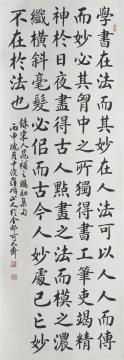 學書在法而其妙在人法可以人人而傳
而妙必其胷中之所獨得書工筆吏竭精
神於日夜盡得古人點畫之法而模之濃
纖橫斜毫髮必佀而古今人妙處已亡妙
不在於法也